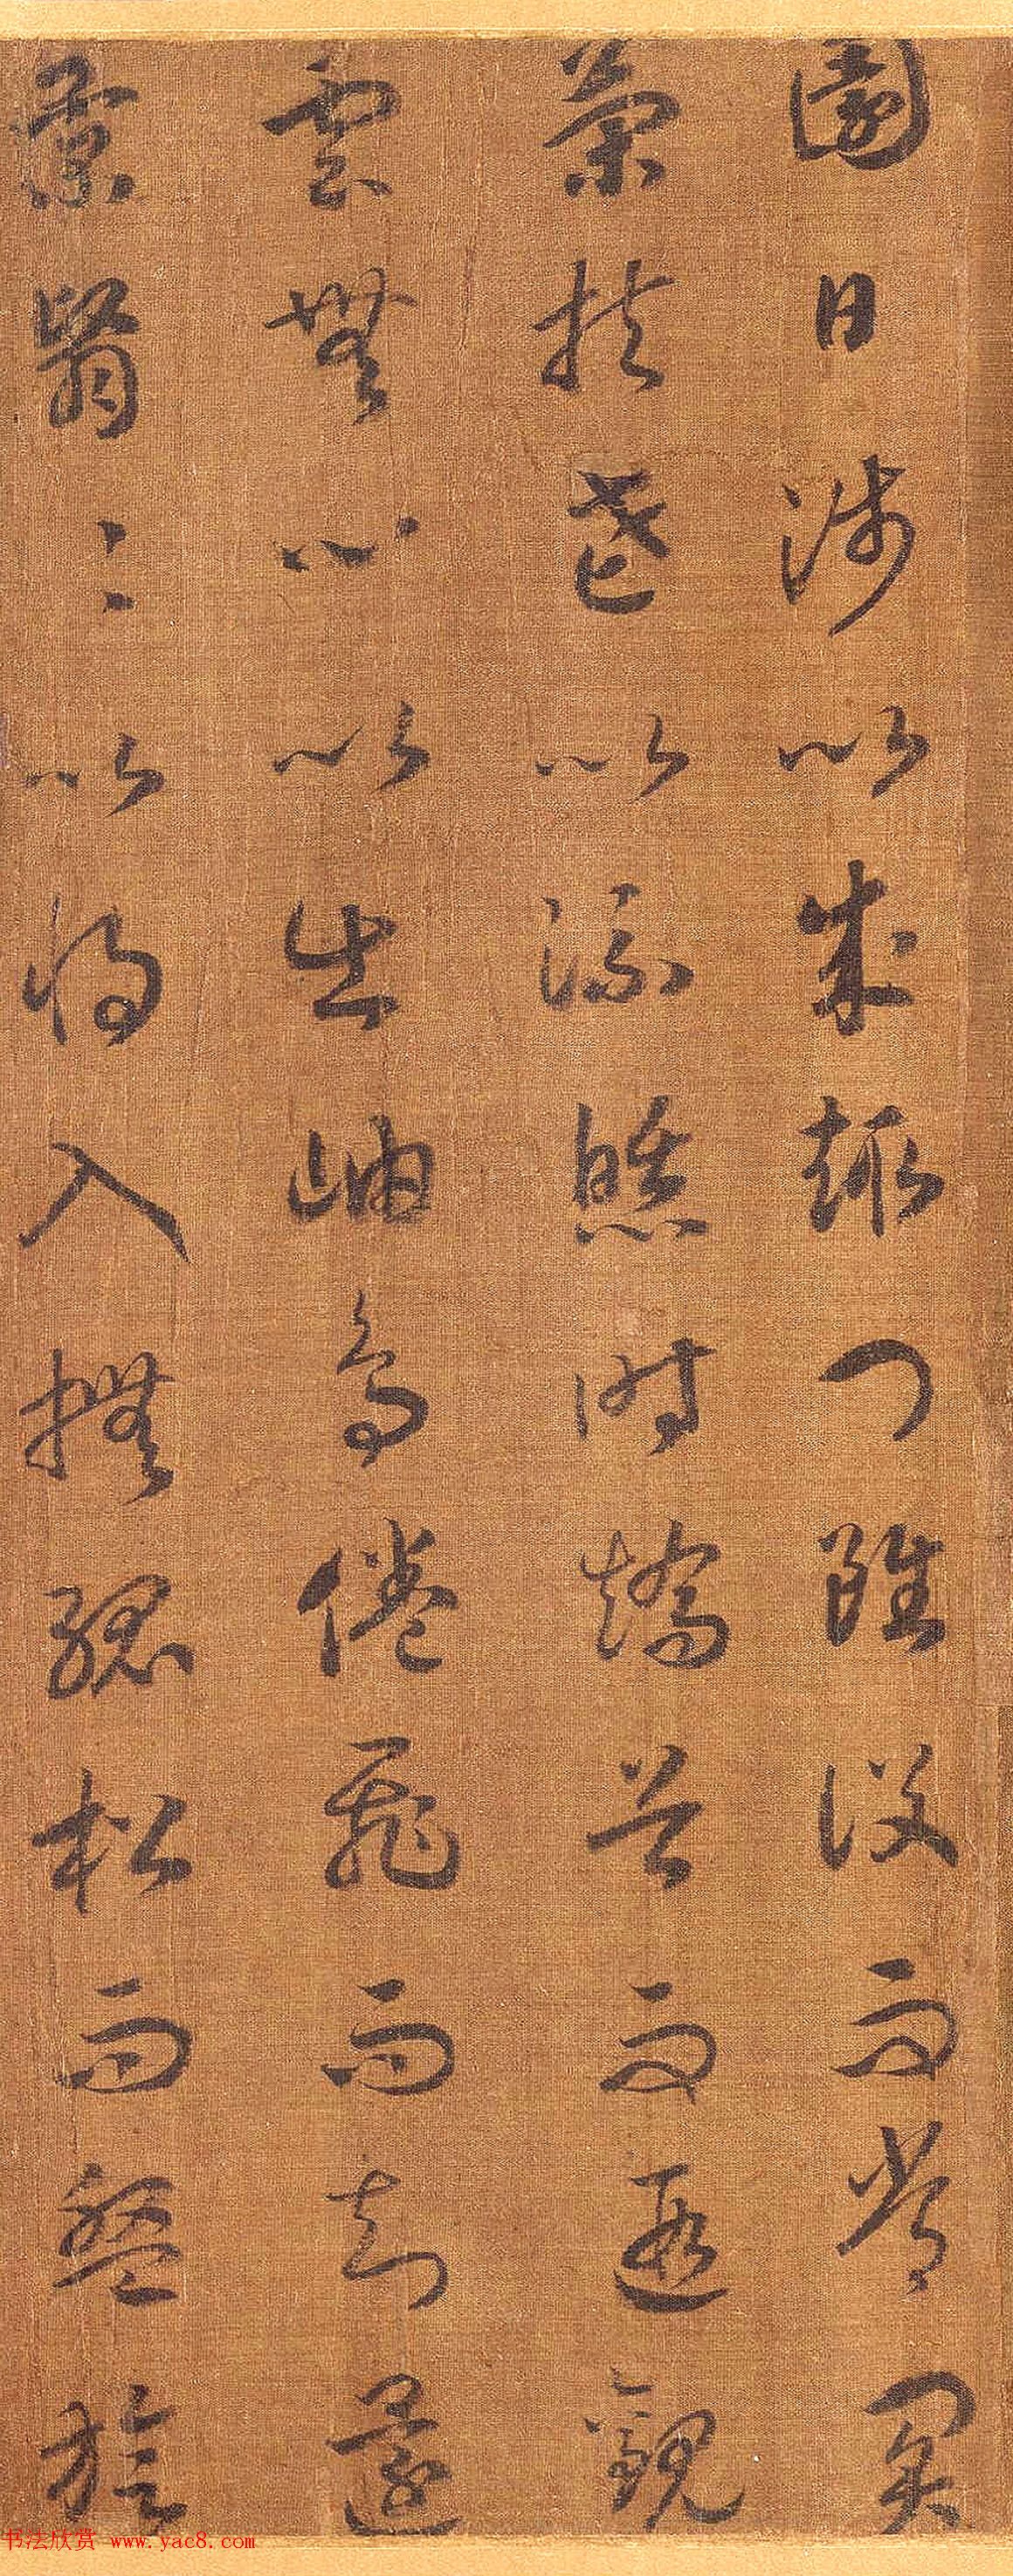 園日涉以成趣門雖設而常關
策扶老以流憩時矯首而遐觀
雲無心以出岫鳥倦飛而知還
景翳〻以將入撫孤松而盤旋
书法欣赏 www.yac8.com